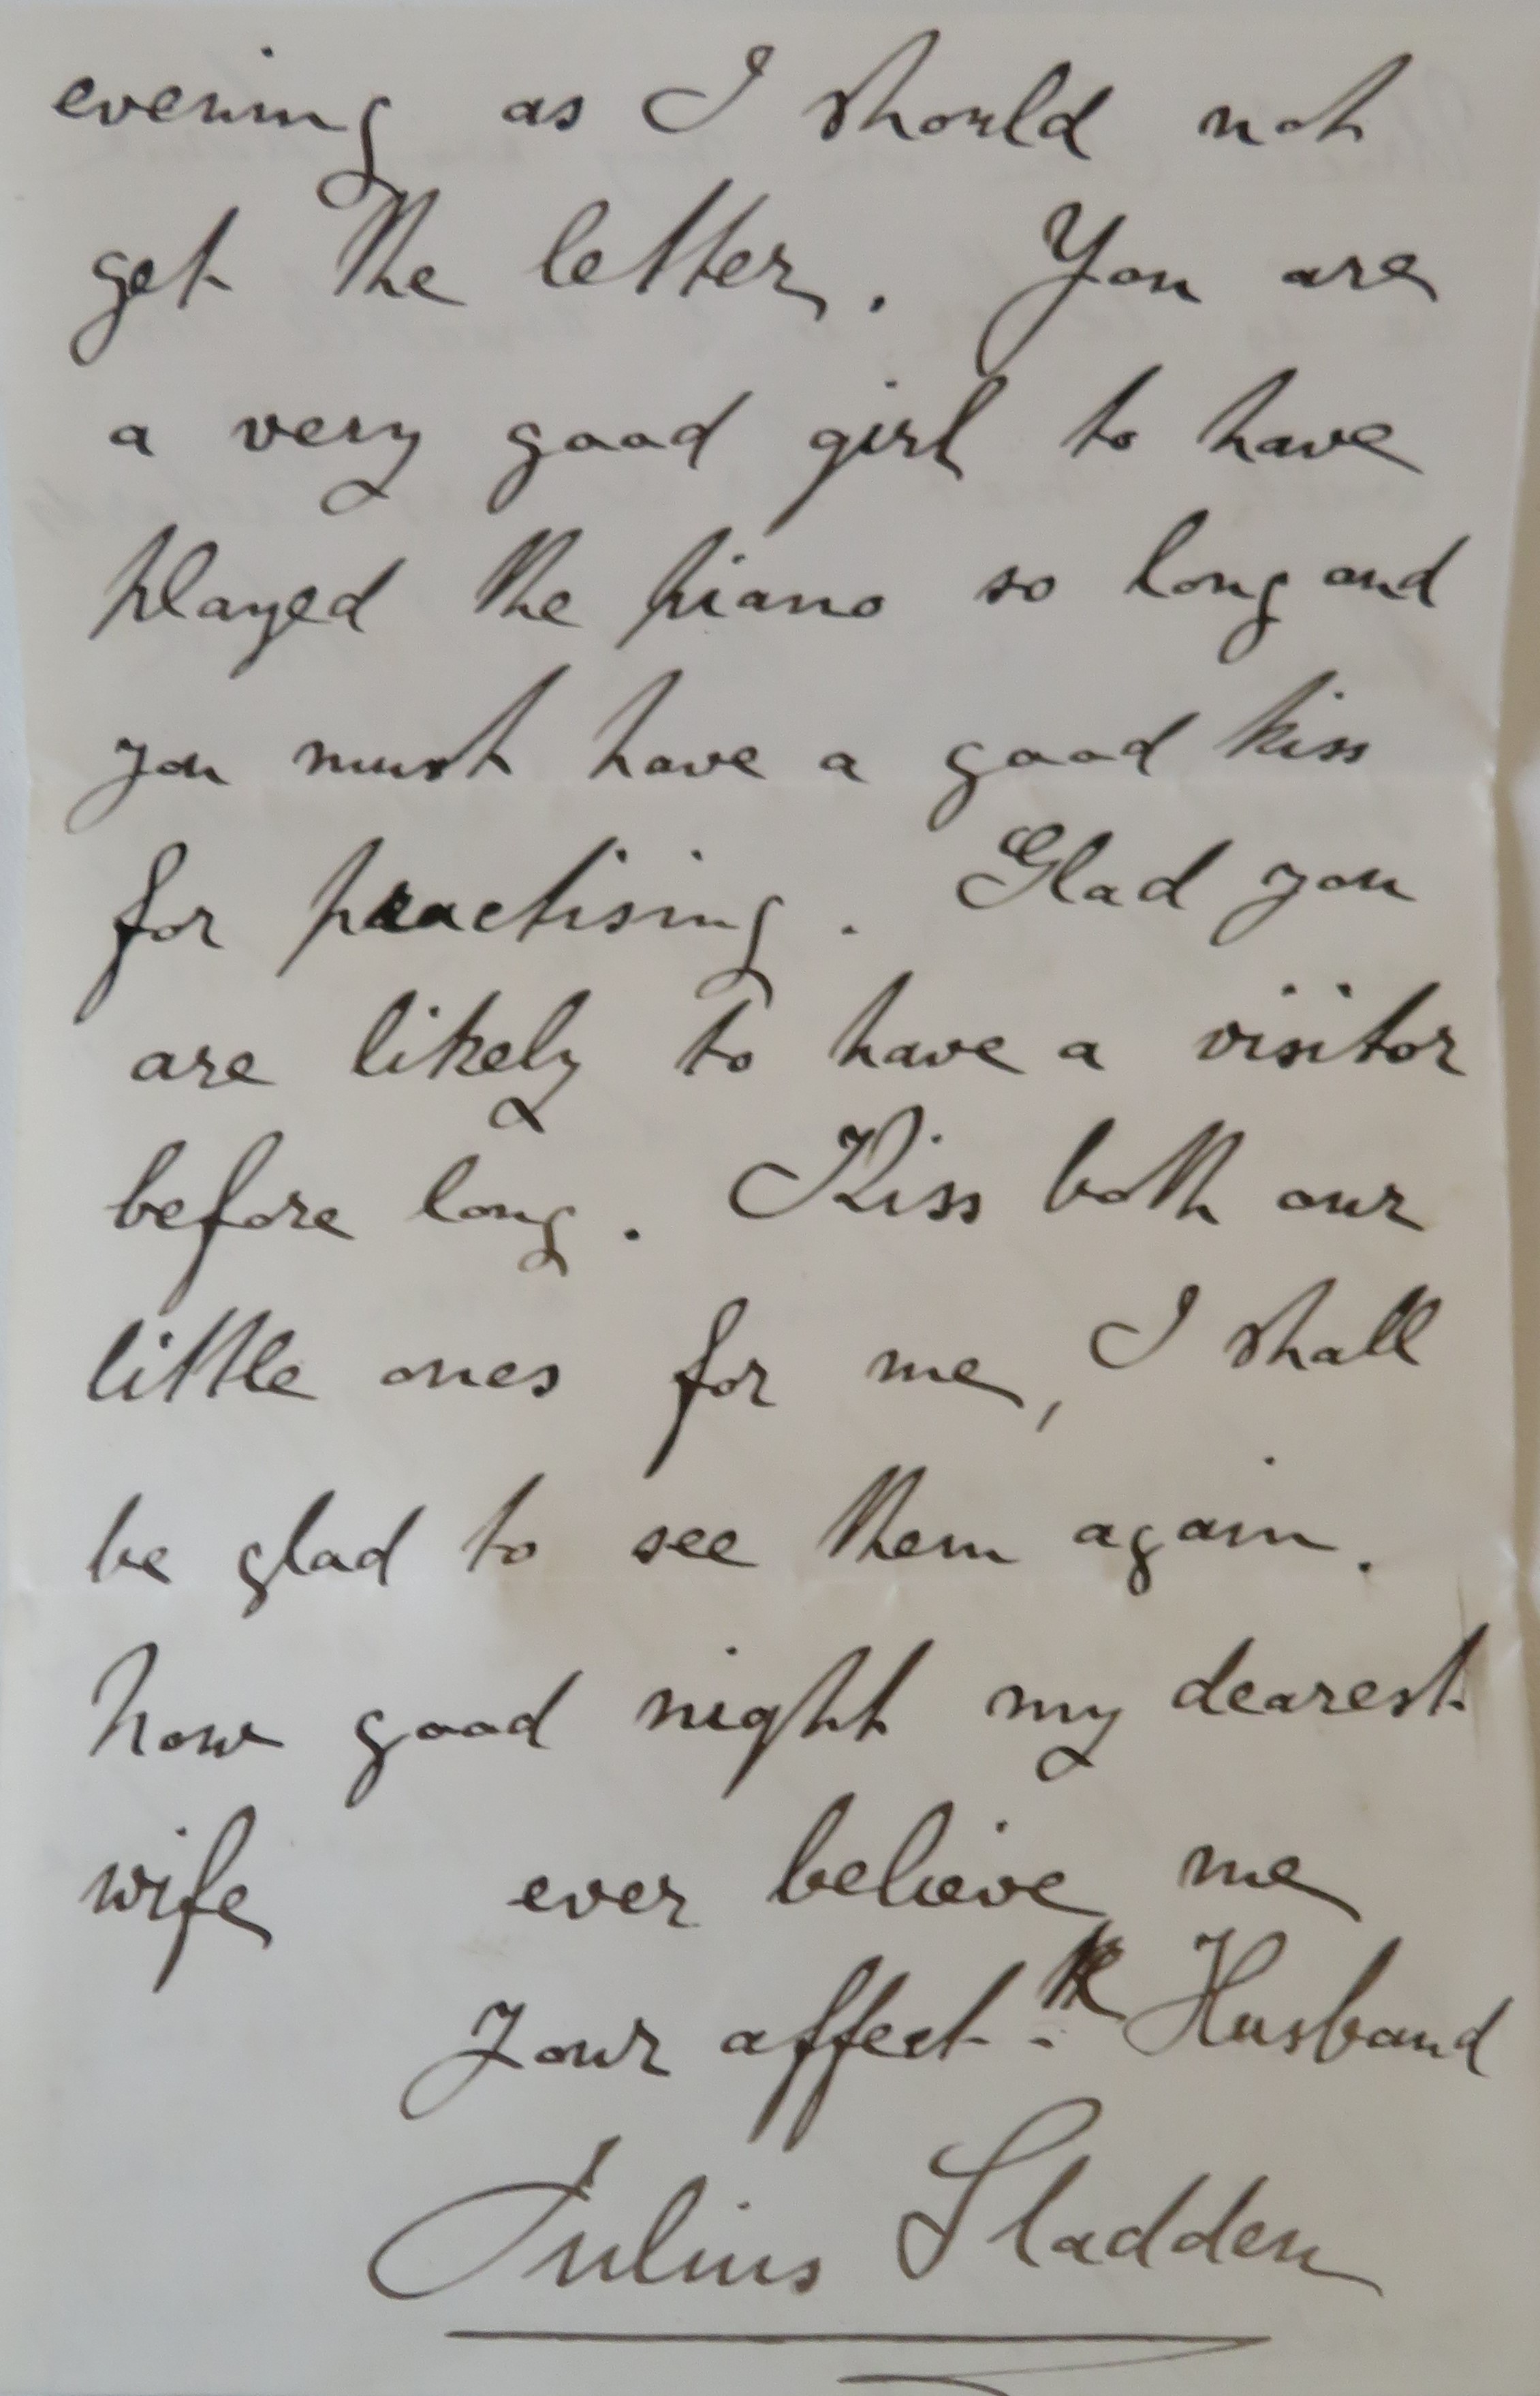 evening as I should not
get the letter. You are
a very good girl to have
played the piano so long and
you must have a good kiss
for practising. Glad you
are likely to have a visitor
before long. Kiss both our
little ones for me, I shall
be glad to see them again.
Now good night my dearest
wife ever believe me
Your affect. te Husband
Julius Sladden